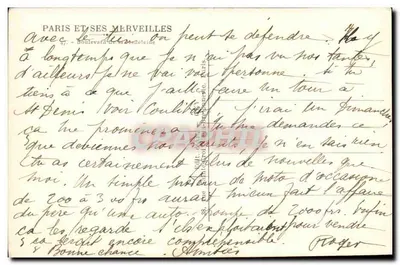 PARIS ET SES MERVEILLES
avec le on peut se défendre. Il y
à longtemps que je n'ai pas vu nos tantes
d'ailleurs je ne vai voir personne. si tu
tiens à ce que j'aille faire un tour à
St Denis voir j'irai un Dimanche
ça me promenera. Tu me demandes ce
que deviennent nos parents, je n'en sais rien
tu as certainement plus de nouvelles que
moi. Un simple moteur de moto d'occasion
de 200 à 300 frs aurait mieux fait l'affaire
du père qu'une auto pompe de 2000 frs. Enfin
ça les regarde s'ils pour vendre
ça serait encore compréhensible.
Bonne chance. Amitiés Roger